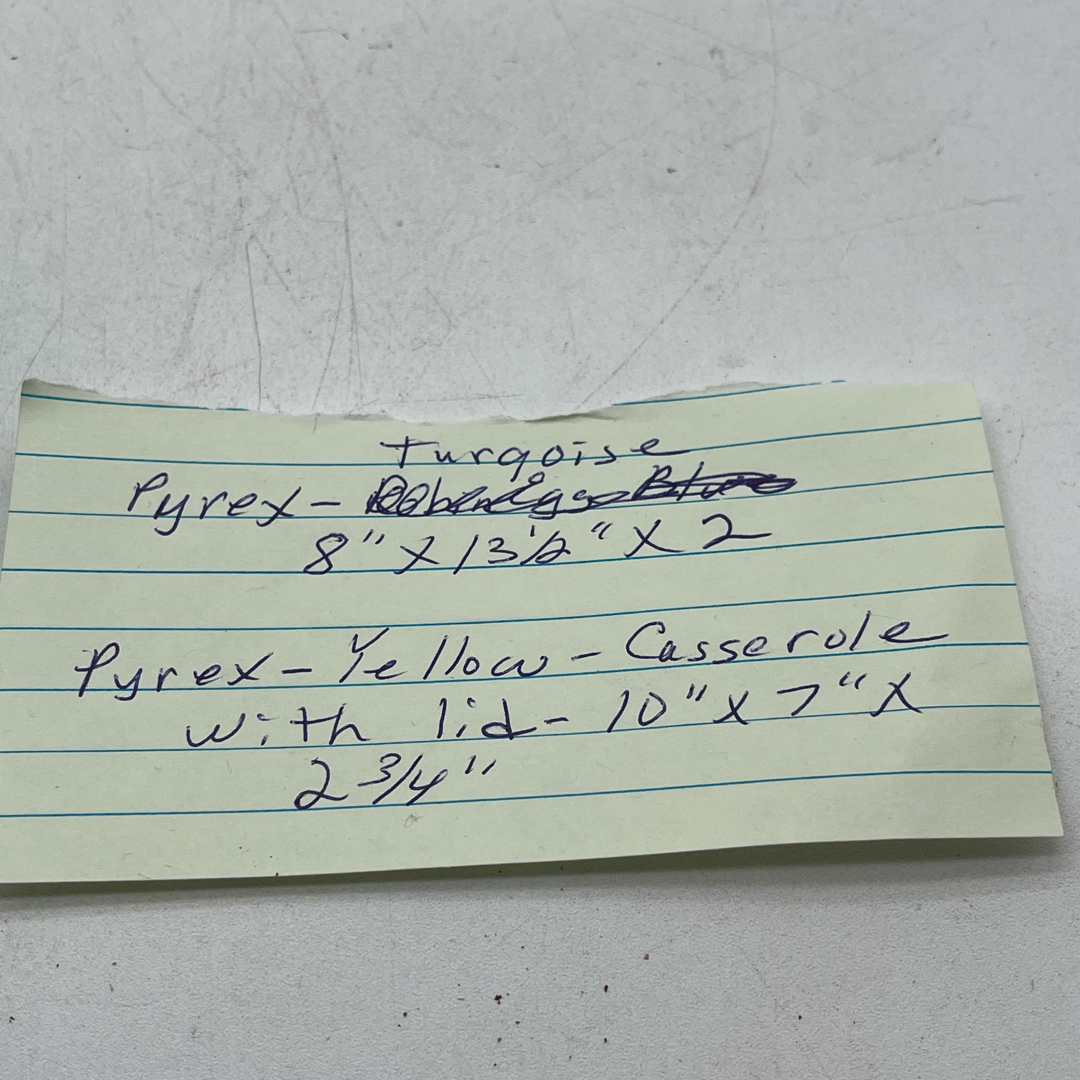 Turqoise
Pyrex -
8" X 13 1/2" X 2
Pyrex - Yellow - Casserole
with lid - 10" x 7" X
2 3/4"